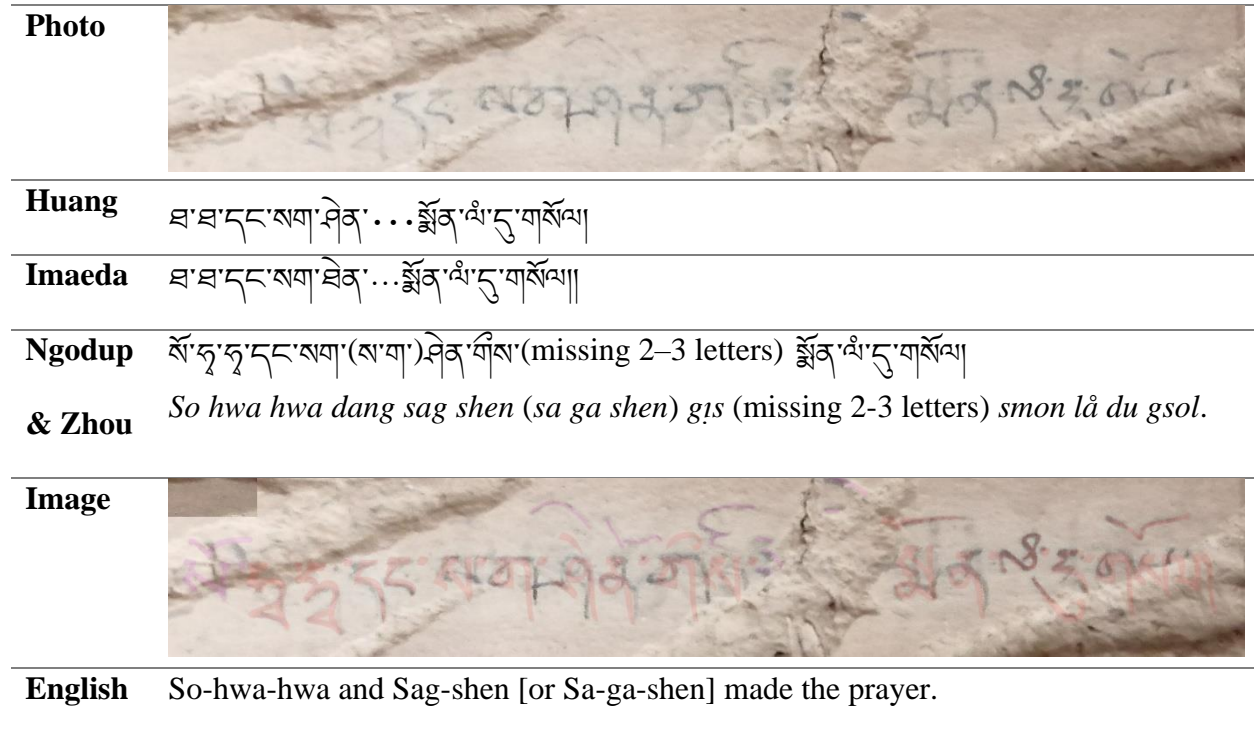 Photo
Huang ཐ་ཐ་དང་སག་ཤེན་...སྨོན་ལཾ་དུ་གསོལ།
Imaeda ཐ་ཐ་དང་སག་ཐེན་...སྨོན་ལཾ་དུ་གསོལ།།
Ngodup སོ་ཧྭ་ཧྭ་དང་སག་(ས་ག་)ཤེན་གྀས་(missing 2–3 letters) སྨོན་ལཾ་དུ་གསོལ།
& Zhou So hwa hwa dang sag shen (sa ga shen) gịs (missing 2-3 letters) smon lå du gsol.
Image
English So-hwa-hwa and Sag-shen [or Sa-ga-shen] made the prayer.